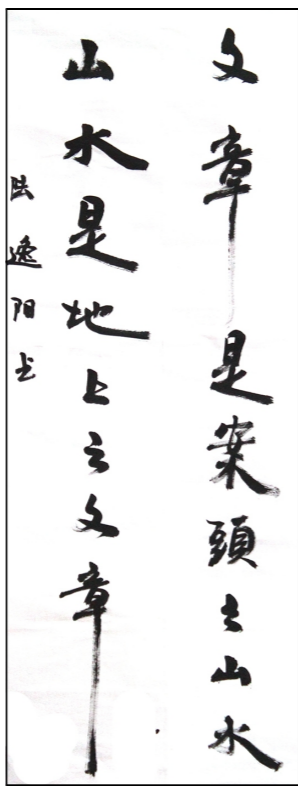 文章是案頭之山水
山水是地上之文章
陆逸阳书